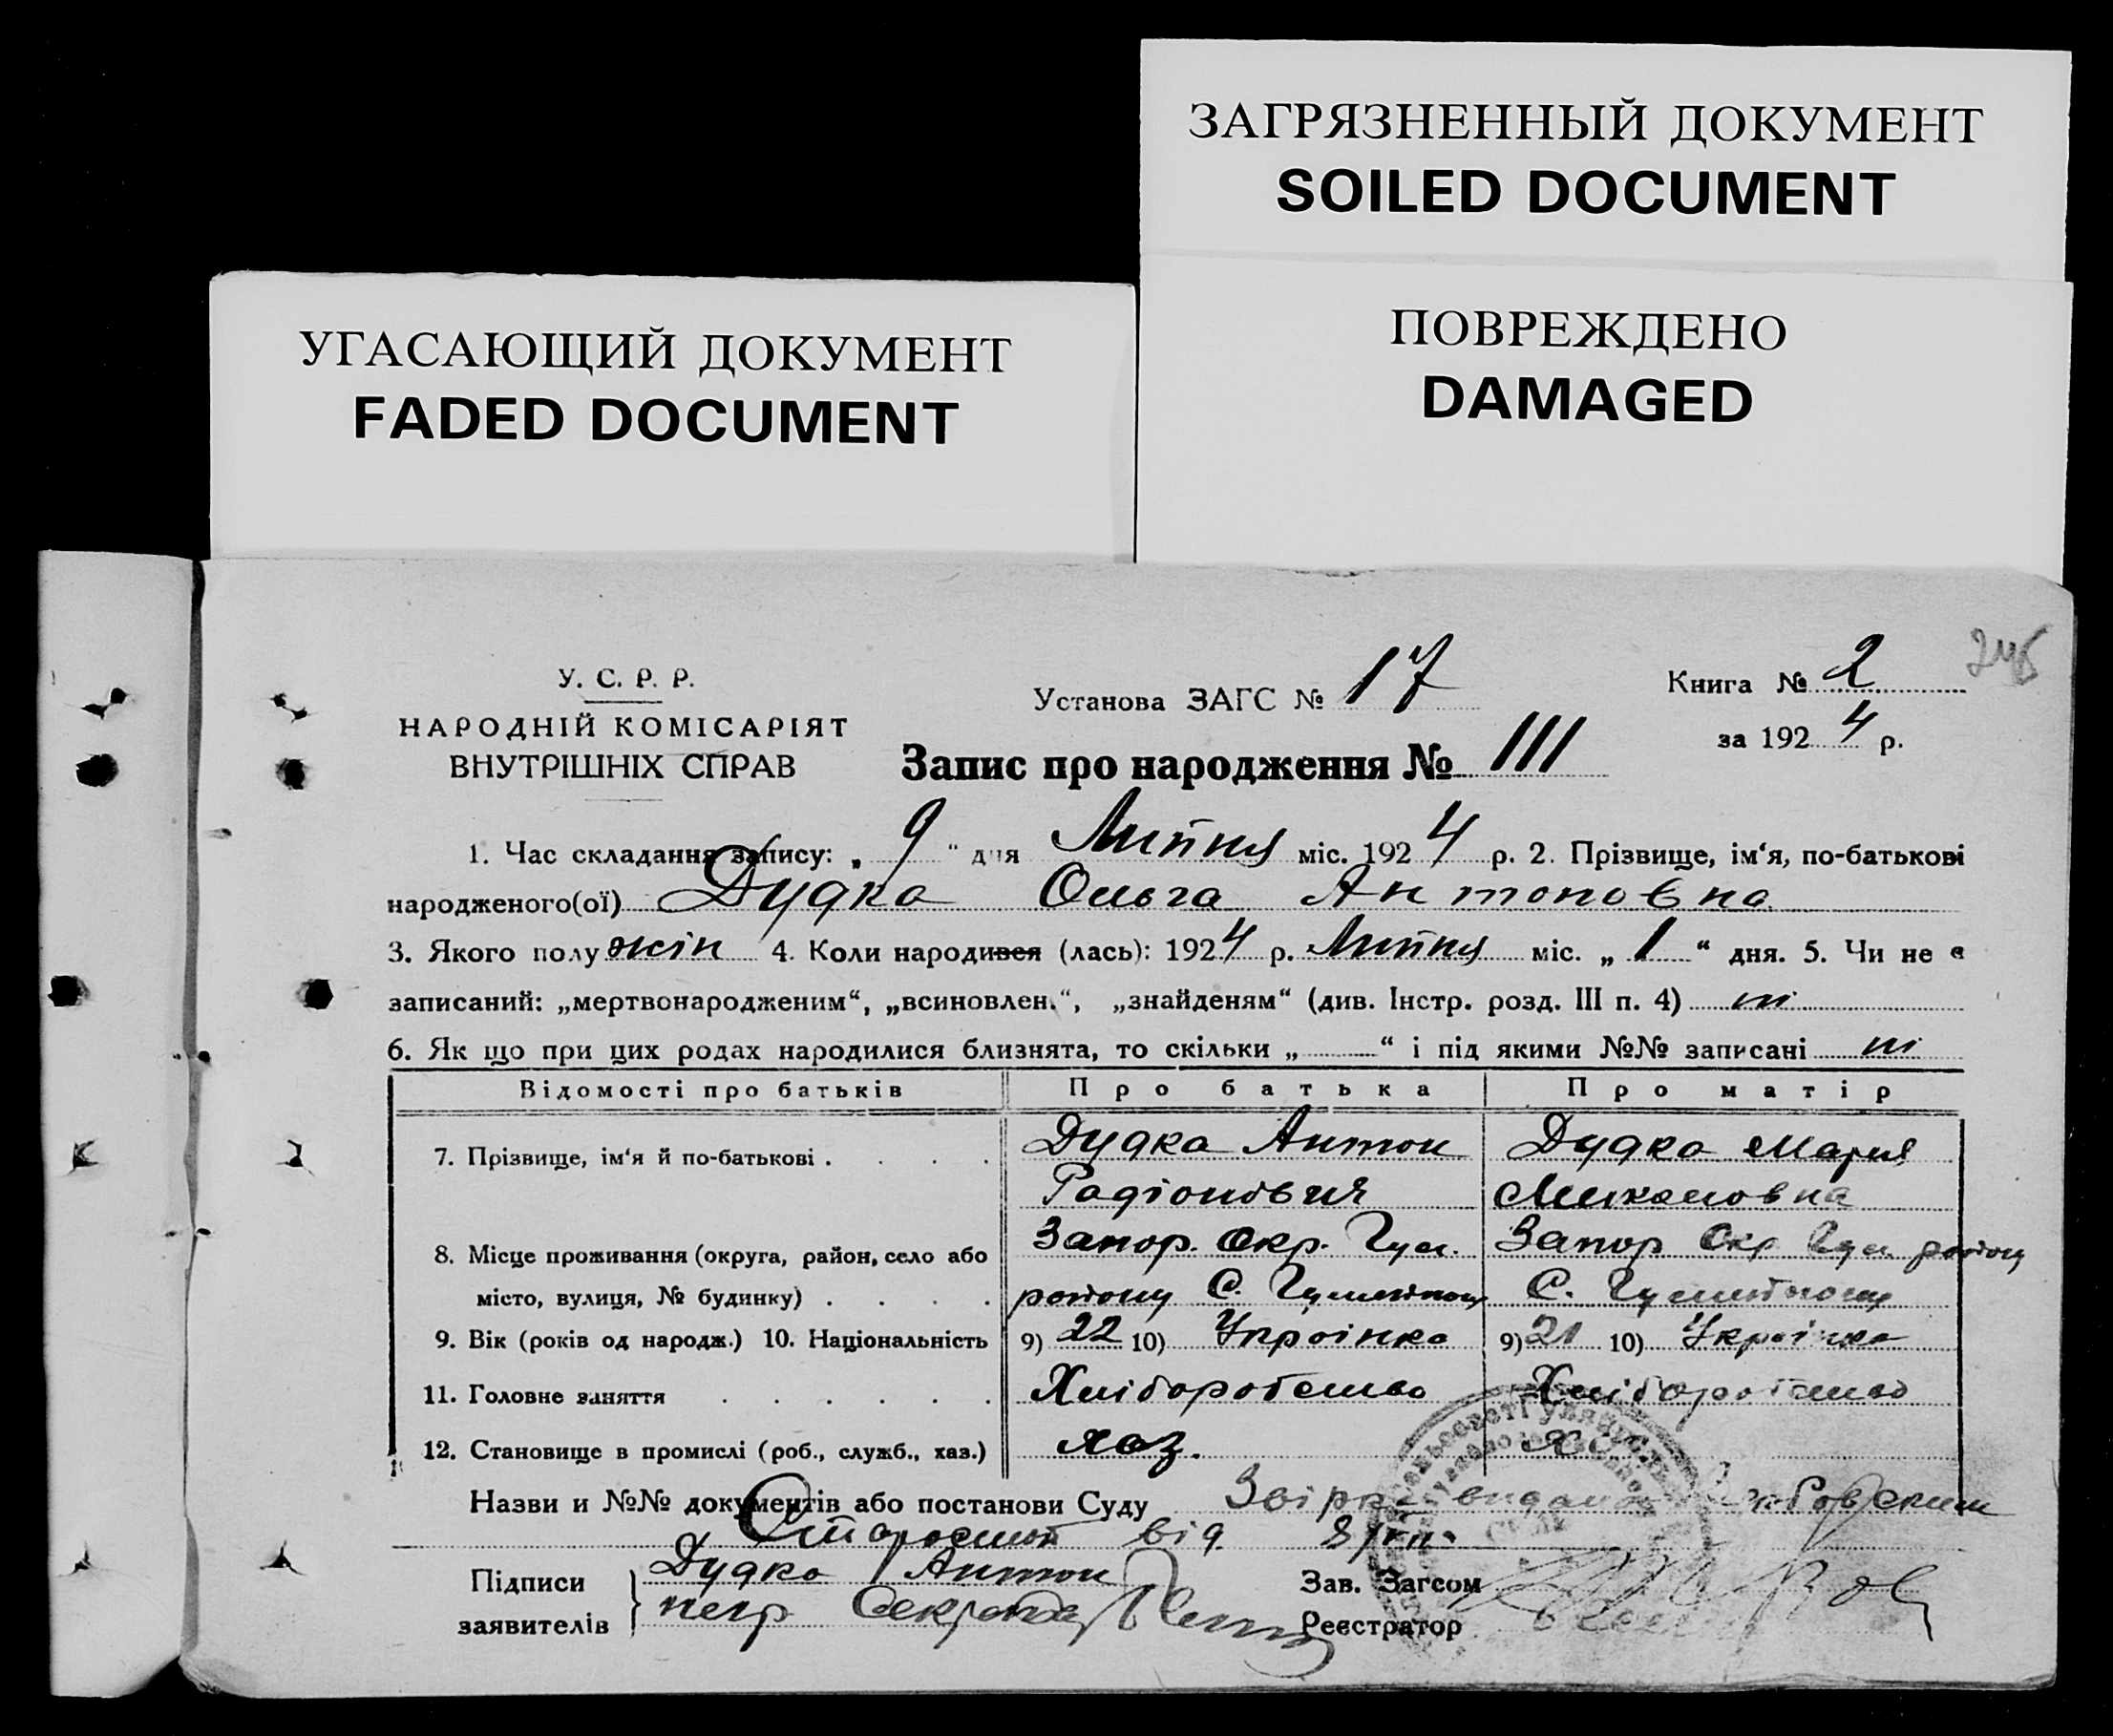 ЗАГРЯЗНЕННЫЙ ДОКУМЕНТ
SOILED DOCUMENT
УГАСАЮЩИЙ ДОКУМЕНТ
FADED DOCUMENT
ПОВРЕЖДЕНО
DAMAGED
У. С. Р. Р.
НАРОДНІЙ КОМІСАРІЯТ
ВНУТРІШНІХ СПРАВ
Установа ЗАГС № 17
Книга № 2
за 1924 р.
Запис про народження № 111
1. Час складання запису: „ 9 " дня Липня міс. 1924 р. 2. Прізвище, ім'я, по-батькові
народженого(ої) Дудка Ольга Антоновна
3. Якого полу жін 4. Коли народився (лась): 1924 р. Липня міс. „ 1 " дня. 5. Чи не є
записаний: „мертвонародженим", „всиновлен.", „знайденям" (див. Інстр. розд. III п. 4) ні
6. Як що при цих родах народилися близнята, то скільки „ " і під якими №№ записані ні
Відомості про батьків Про батька Про матір
7. Прізвище, ім'я й по-батькові . . . . Дудка Антон Дудка Мария
Радіонович
8. Місце проживання (округа, район, село або Запор. Окр. Гул. Запор Окр Гул району
місто, вулиця, № будинку) . . . . району С. С.
9. Вік (років од народж.) 10. Національність 9) 22 10) Украінка 9) 21 10) Украінка
11. Головне заняття . . . . . . Хліборобство Хліборобство
12. Становище в промислі (роб., служб., хаз.) хаз.
Назви и №№ документів або постанови Суду видана
від
Підписи
заявителів
Дудка Антон
Зав. Загсом
Реєстратор